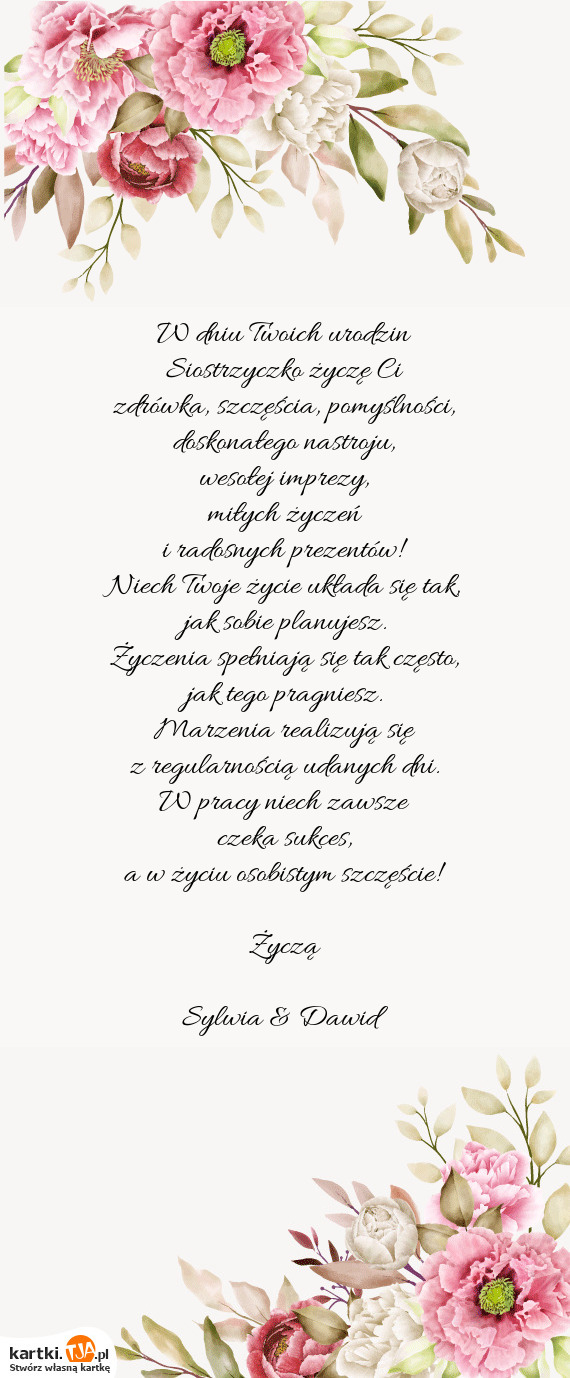 W dniu Twoich urodzin
Siostrzyczko życzę Ci
zdrówka, szczęścia, pomyślności,
doskonałego nastroju,
wesołej imprezy,
miłych życzeń
i radosnych prezentów!
Niech Twoje życie układa się tak,
jak sobie planujesz.
Życzenia spełniają się tak często,
jak tego pragniesz.
Marzenia realizują się
z regularnością udanych dni.
W pracy niech zawsze
czeka sukces,
a w życiu osobistym szczęście!
Życzą
Sylwia & Dawid
kartki.TJA.pl
Stwórz własną kartkę